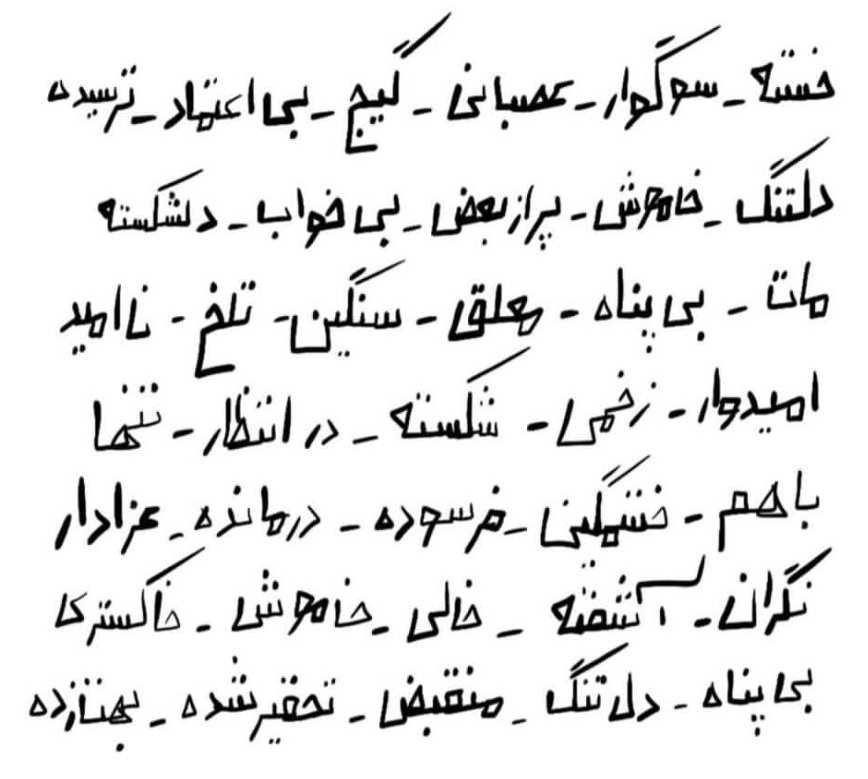 خسته - سوگوار - عصبانی - گیج - بی اعتماد - ترسیده
دلتنگ - خاموش - پر از بغض - بی خواب - دلشکسته
مات - بی پناه - معلق - سنگین - تلخ - ناامید
امیدوار - زخمی - شکسته - در انتظار - تنها
باهم - خشمگین - فرسوده - درمانده - عزادار
نگران - آشفته - خالی - خاموش - خاکستری
بی پناه - دل تنگ - منقبض - تحقیر شده - بهت‌زده